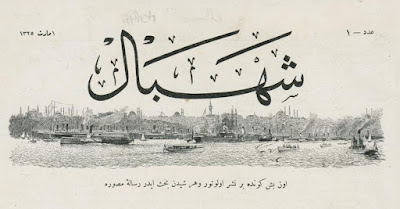 عدد — ١
١ مارت ١٣٢٥
شهبال
اون بش كونده بر نشر اولونور وهر شيدن بحث ايدر رسالهٔ مصوره